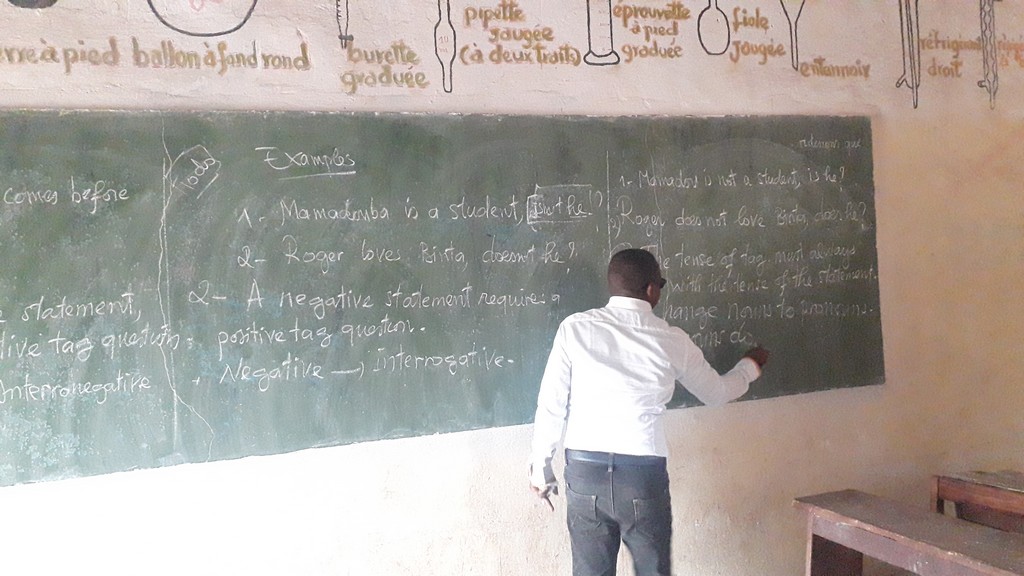 à pied
ballon à fond rond
burette
graduée
pipette
jaugée
(à deux traits)
éprouvette
à pied
graduée
fiole
jaugée
entonnoir
droit
comes before
statement,
tive tag question,
Interronegative
Examples
1- Mamadouba is a student, isn't he?
2- Roger loves Binta, doesn't he?
2- A negative statement require a
positive tag question.
+ Negative → Interrogative.
1- Mamadou is not a student, is he?
2) Roger does not love Binta, does he?
tense of tag must always
with the tense of the statement.
hange nouns to pronouns.